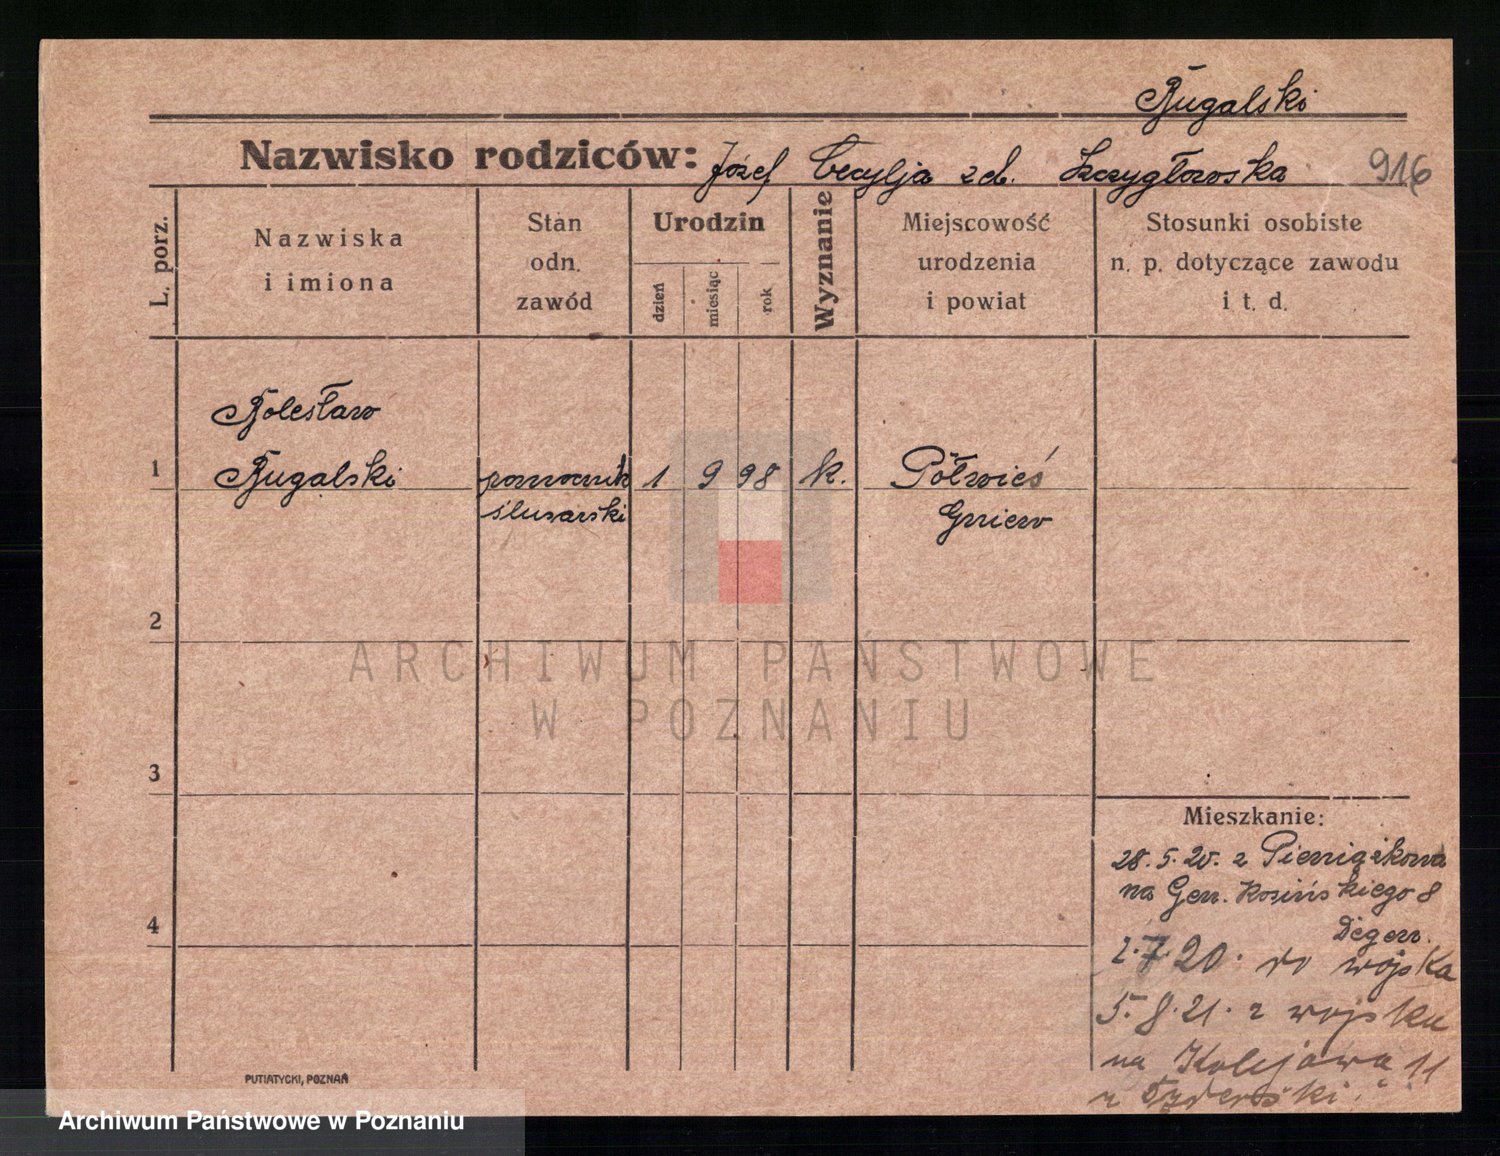 Bugalski
Nazwisko rodziców: Józef Cecylja zd. Szczygłowska 916
L. porz.
Nazwiska
i imiona
Stan
odn.
zawód
Urodzin
dzień
miesiąc
rok
Wyznanie
Miejscowość
urodzenia
i powiat
Stosunki osobiste
n. p. dotyczące zawodu
i t. d.
Bolesław
1 Bugalski pomocnik 1 9 98 k. Półwieś
ślusarski Gniew
2
ARCHIWUM PAŃSTWOWE
W POZNANIU
3
Mieszkanie:
28.5.20. z Pieniążkowa
na Gen. Kosińskiego 8
4
Degen.
2.7.20. do wojska
5.8.21. z wojska
na Kolejowa 11
PUTIATYCKI, POZNAŃ
Archiwum Państwowe w Poznaniu